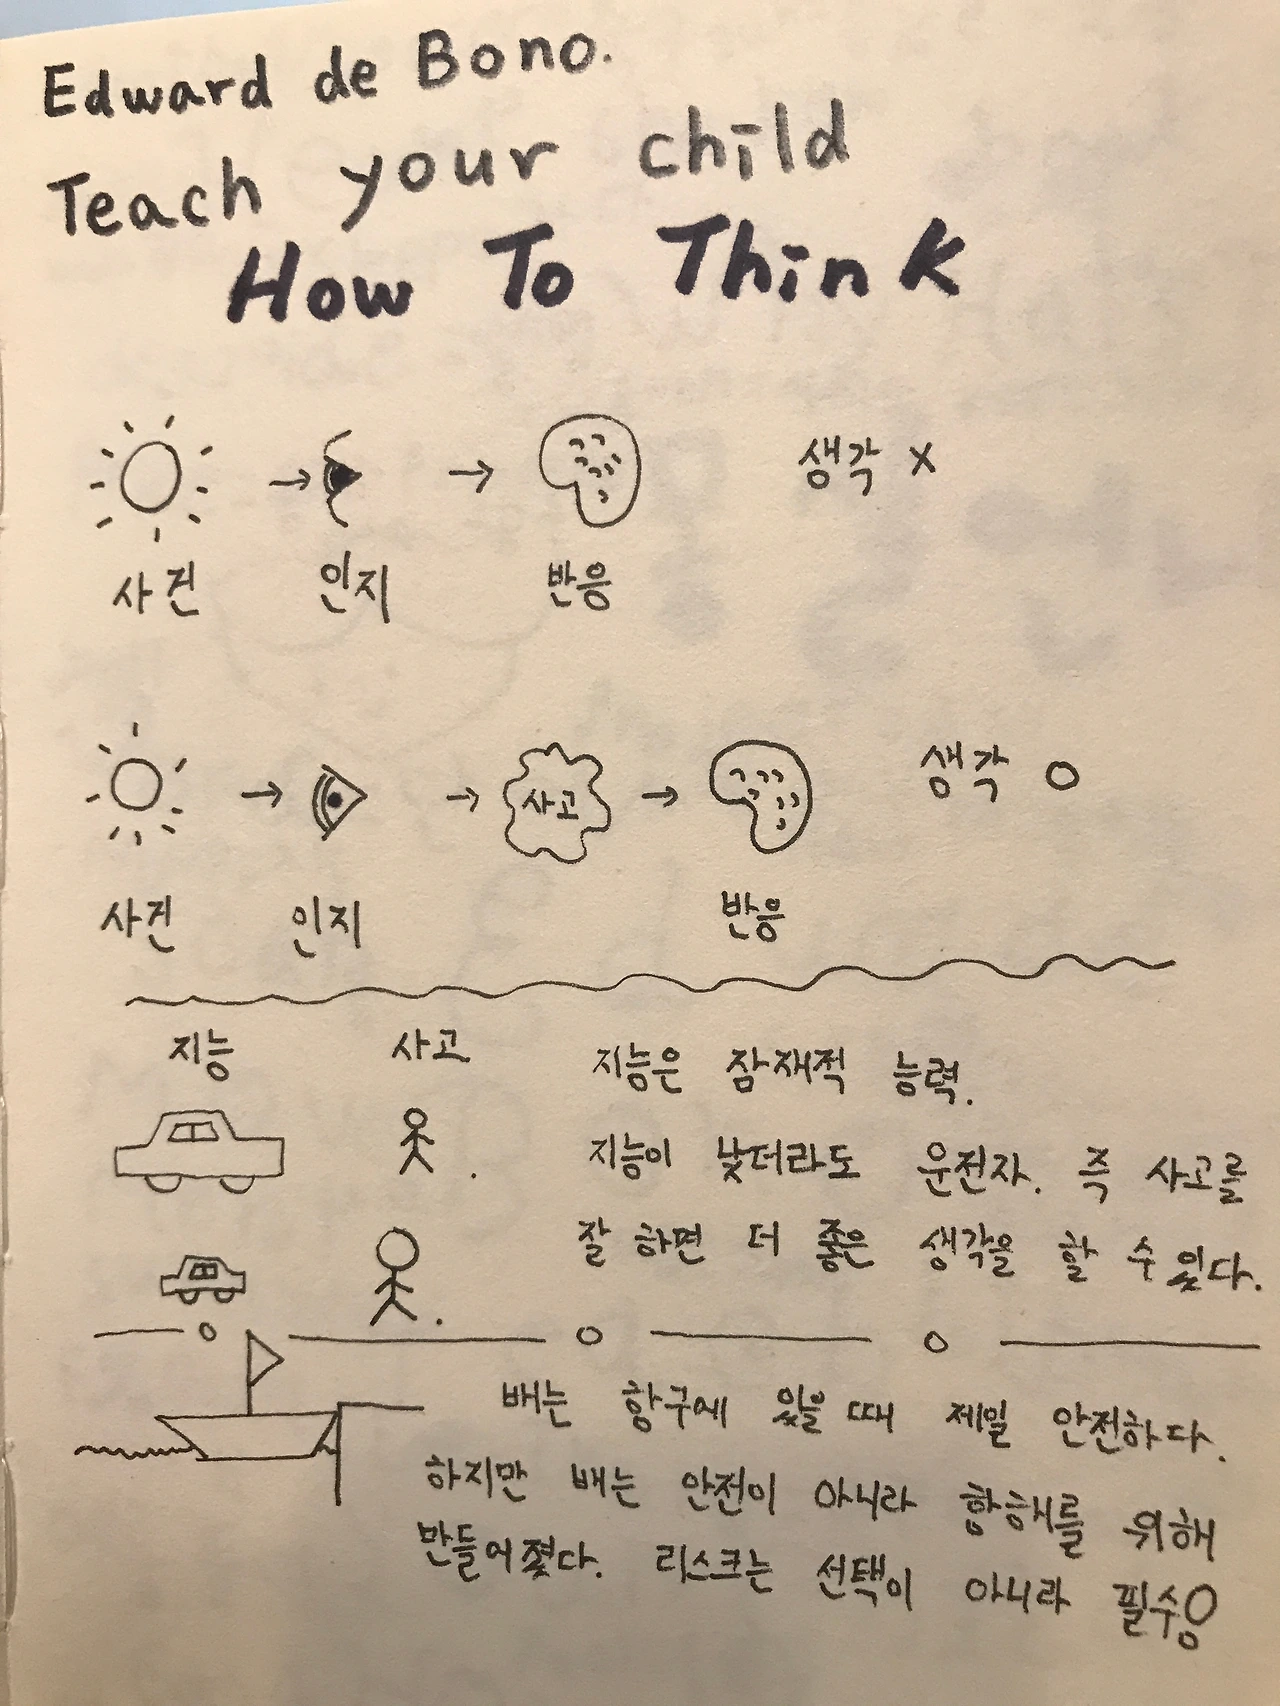 Edward de Bono.
Teach your child
How To Think
생각 X
사건 인지 반응
사고
생각 O
사건 인지 반응
지능 사고
지능은 잠재적 능력.
지능이 낮더라도 운전자. 즉 사고를
잘 하면 더 좋은 생각을 할 수 있다.
배는 항구에 있을 때 제일 안전하다.
하지만 배는 안전이 아니라 항해를 위해
만들어졌다. 리스크는 선택이 아니라 필수!